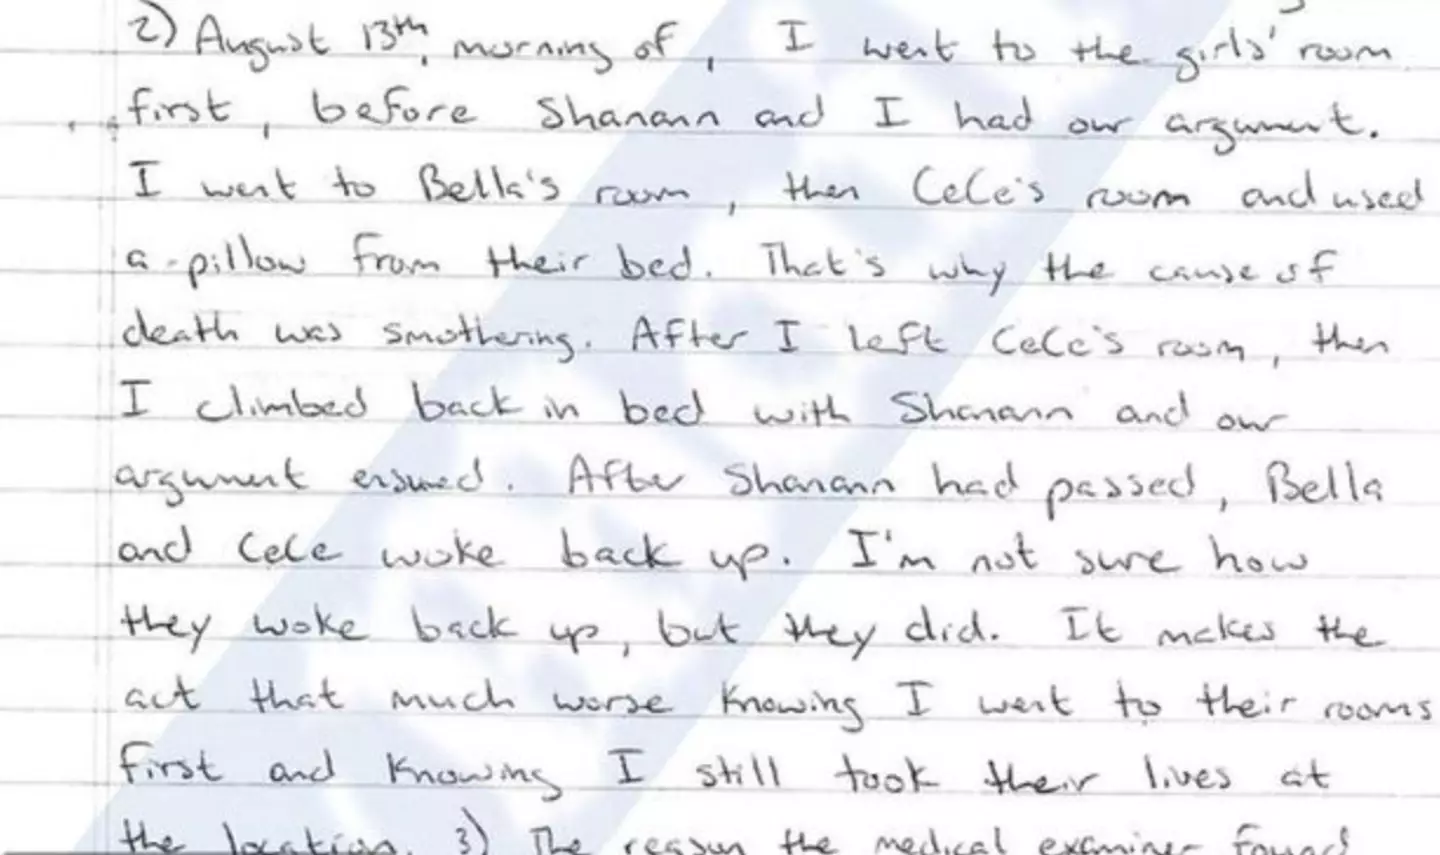 2) August 13th, morning of, I went to the girls' room
first, before Shanann and I had our argument.
I went to Bella's room, then CeCe's room and used
a pillow from their bed. That's why the cause of
death was smothering. After I left CeCe's room, then
I climbed back in bed with Shanann and our
argument ensued. After Shanann had passed, Bella
and CeCe woke back up. I'm not sure how
they woke back up, but they did. It makes the
act that much worse knowing I went to their rooms
first and knowing I still took their lives at
the location. 3) The reason the medical examiner found